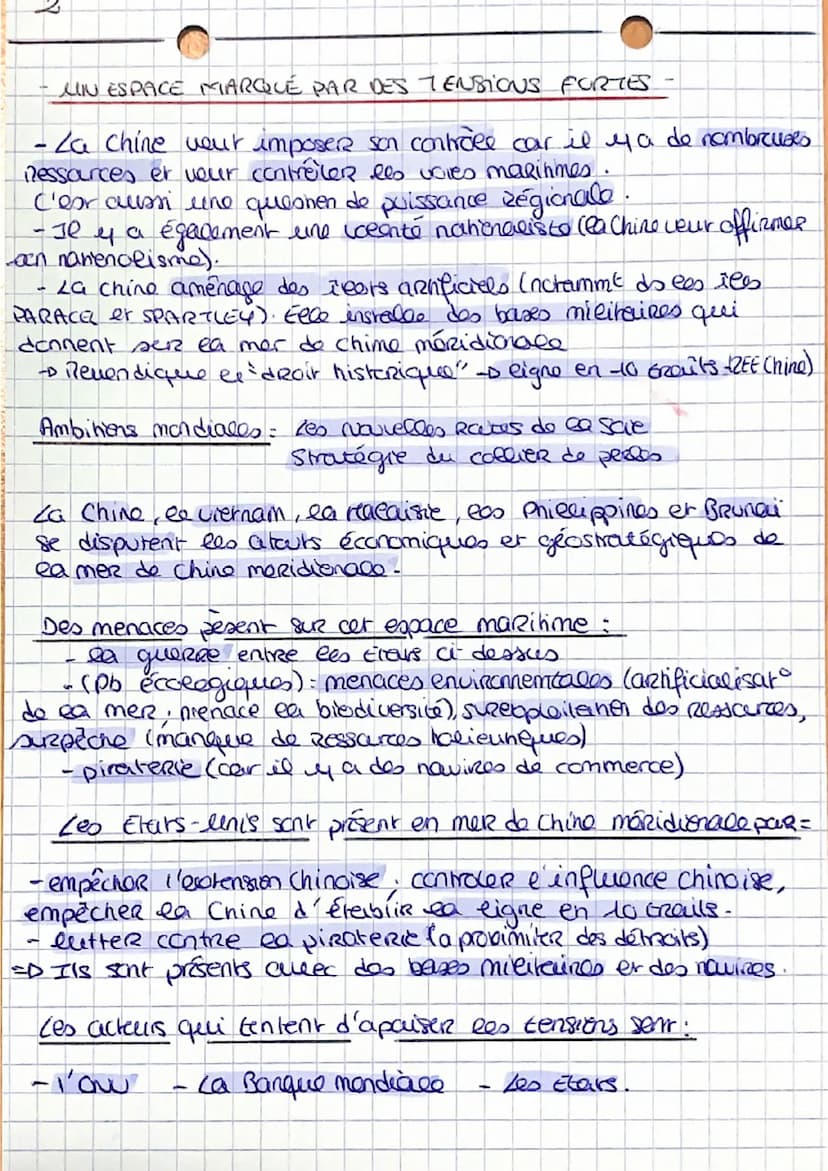 2
- UN ESPACE MARQUÉ PAR DES TENSIONS FORTES -
- La Chine veut imposer son contrôle car il y a de nombreuses
ressources et veut contrôler les voies maritimes.
C'est aussi une question de puissance régionale.
- Il y a également une volonté nationaliste (la Chine veut affirmer
son nationalisme).
- La chine aménage des îlots artificiels (notammt ds les îles
PARACEL et SPARTLEY). Elle installe des bases militaires qui
donnent sur la mer de chine méridionale
→ Revendique le "droit historique" → ligne en 10 traits (ZEE Chine)
Ambitions mondiales : Les Nouvelles Routes de la Soie
Stratégie du collier de perles
La Chine, le vietnam, la Malaisie, les Philippines et Brunei
se disputent les atouts économiques et géostratégiques de
la mer de Chine meridionale.
Des menaces pèsent sur cet espace maritime :
- la guerre entre les Etats ci dessus
- (Pb écologiques) : menaces environnementales (artificialisat°
de la mer, menace la biodiversité), surexploitation des ressources,
surpêche (manque de ressources halieutiques)
- piraterie (car il y a des navires de commerce)
Les Etats-Unis sont présent en mer de Chine méridionale par :
- empêcher l'extension Chinoise, controler l'influence chinoise,
empêcher la Chine d'établir la ligne en 10 traits.
- lutter contre la piraterie (a proximiter des détroits)
⇒ Ils sont présents avec des bases militaires et des navires.
Les acteurs qui tentent d'apaiser les tensions sont :
- l'ONU - La Banque mondiale - Les Etats.